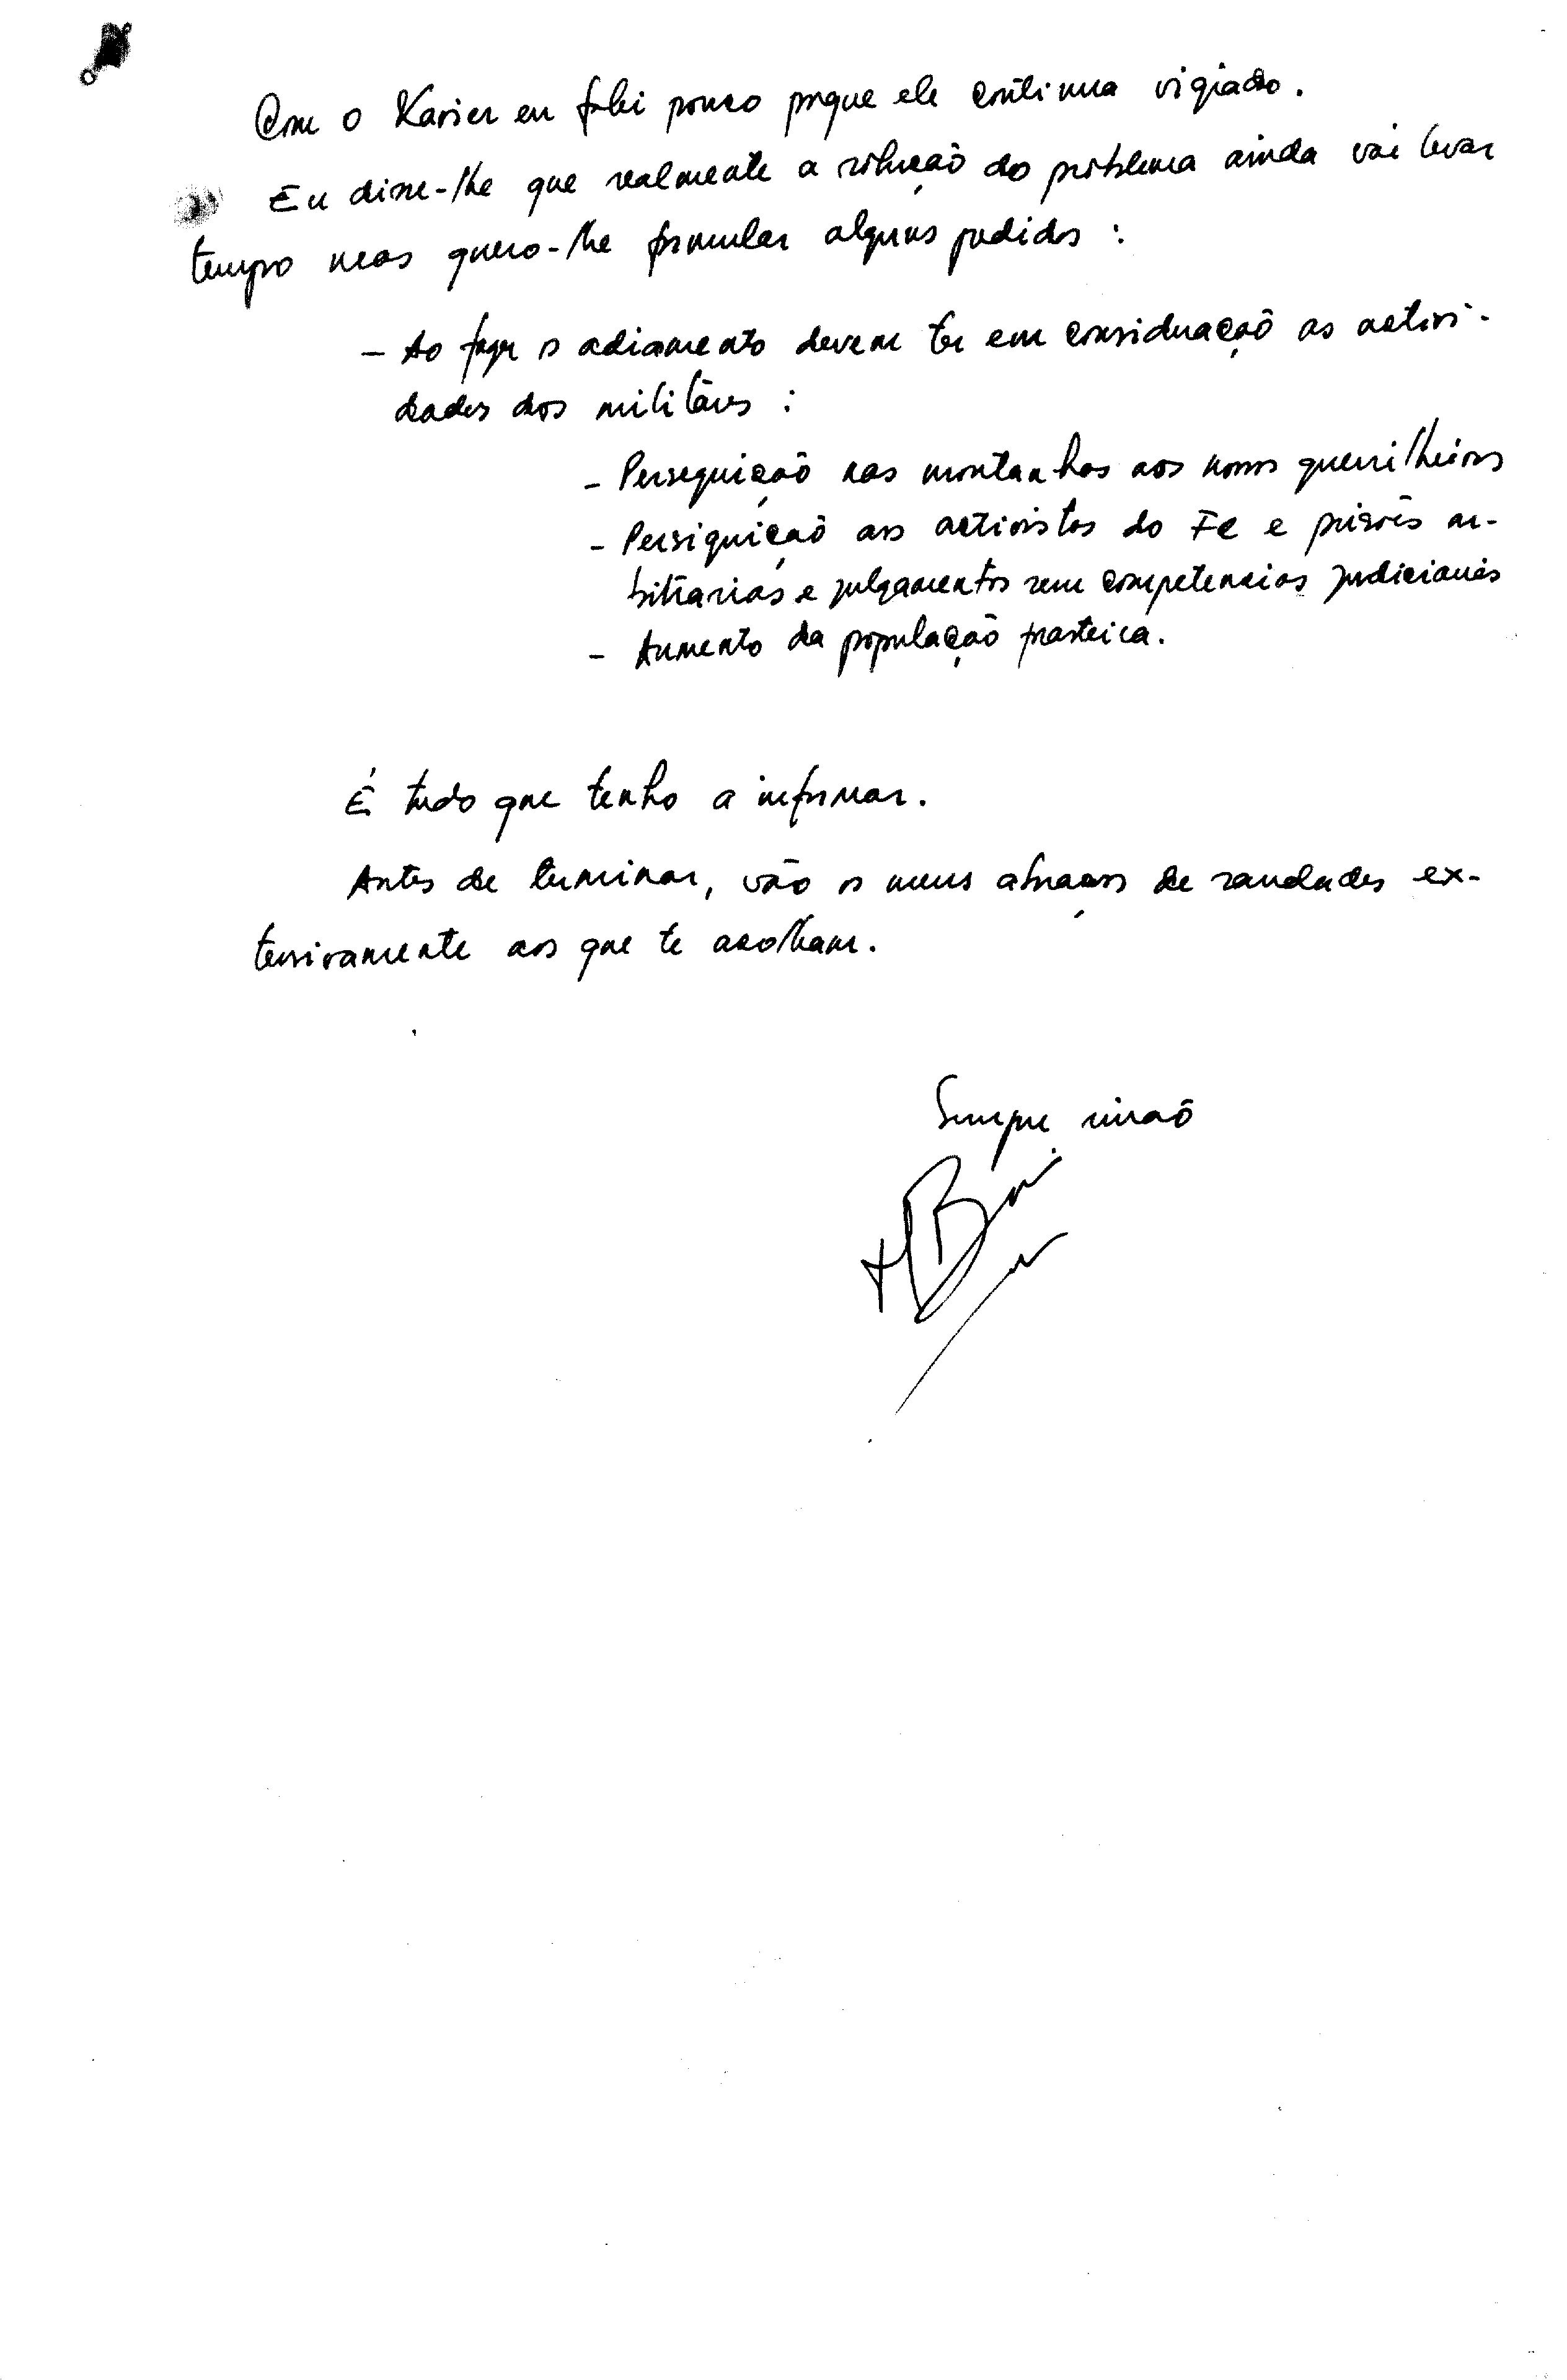 Com o Xavier eu falei pouco porque ele continua vigiado.
Eu disse-lhe que realmente a solução do problema ainda vai levar
tempo mas quero-lhe formular alguns pedidos :
- Ao fazer o adiamento devem ter em consideração as activi-
dades dos militares :
- Perseguição nas montanhas aos nossos guerrilheiros
- Persiguição aos activistas do FC e prisões ar-
bitrarias e julgamentos sem competencias judiciais
- Aumento da população
É tudo que tenho a informar.
Antes de terminar, vão os meus abraços de saudades ex-
tensivamente aos que te acolham.
Sempre irmaõ